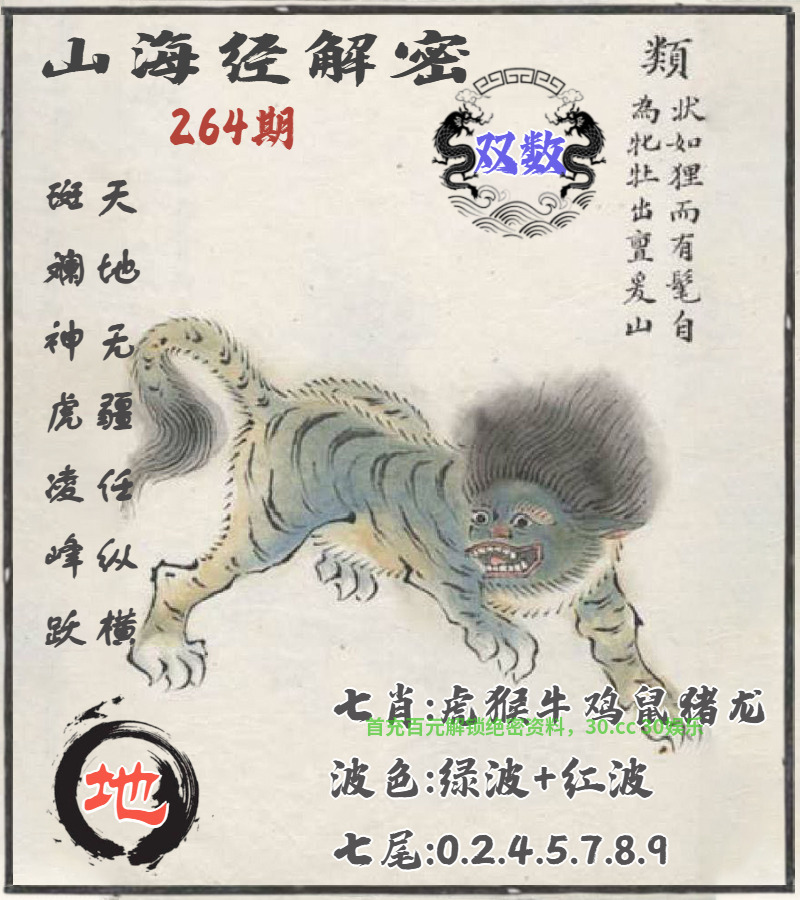 山海经解密
264期
双数
類
状如狸而有髦自
為牝牡出亶爰山
天地无疆任纵横
斑斓神虎凌峰跃
地
七肖:虎猴牛鸡鼠猪龙
首充百元解锁绝密资料，30.cc 30娱乐
波色:绿波+红波
七尾:0.2.4.5.7.8.9